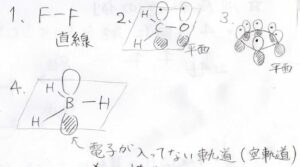 1、F-F
直線
2、
H
H
C
O
平面
3、
平面
4、
H
H
B
H
電子が入ってない軌道(空軌道)